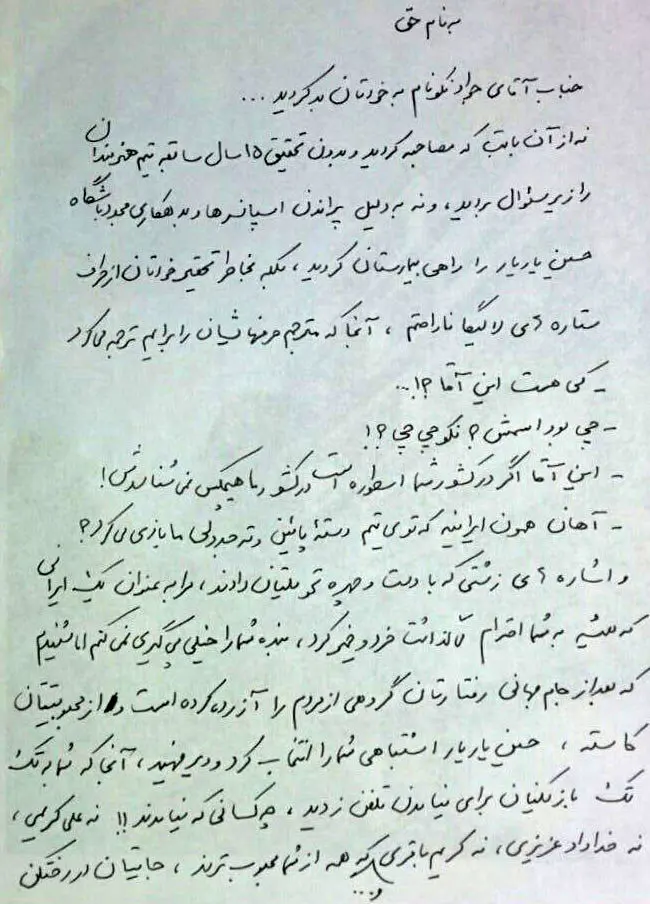 به نام حق
جناب آقای جواد نکونام به خودتان بد کردید ...
نه از آن بابت که مصاحبه کردید و بدون تحقیق ۱۵ سال سابقه تیم هنرمندان
را زیر سئوال بردید، و نه به دلیل پراندن اسپانسرها و بدهکاری مجدد باشگاه
حسین یاریار را راهی بیمارستان کردید، بلکه بخاطر تحقیر خودتان از طرف
ستاره های لالیگا ناراحتم، آنجا که مترجم حرفهاشان را برایم ترجمه می کرد
- کی هست این آقا؟!...
- چی بود اسمش؟ نکو چی چی؟!
- این آقا اگر در کشور شما اسطوره است در کشور ما هیچکس نمی شناسدش!
- آهان همون ایرانیه که توی تیم دستهٔ پائین و ته جدولی ما بازی می کرد؟
و اشاره های زشتی که با دست و چهره تحویلتان دادند، مرا به عنوان یک ایرانی
که همیشه به شما احترام گذاشت خرد و خمیر کرد، بنده شما را خیلی پیگیری نمی کنم اما شنیدم
که بعد از جام جهانی رفتارتان گروهی از مردم را آزرده کرده است و از محبوبیتتان
کاسته، حسین یاریار اشتباهی شما را انتخاب کرد و دیر فهمید، آنجا که شما به تک
تک بازیکنان برای نیامدن تلفن زدید، چه کسانی که نیامدند!! نه علی کریمی،
نه خداداد عزیزی، نه کریم باقری و... که همه از شما محبوب ترند، جایتان در رختکن